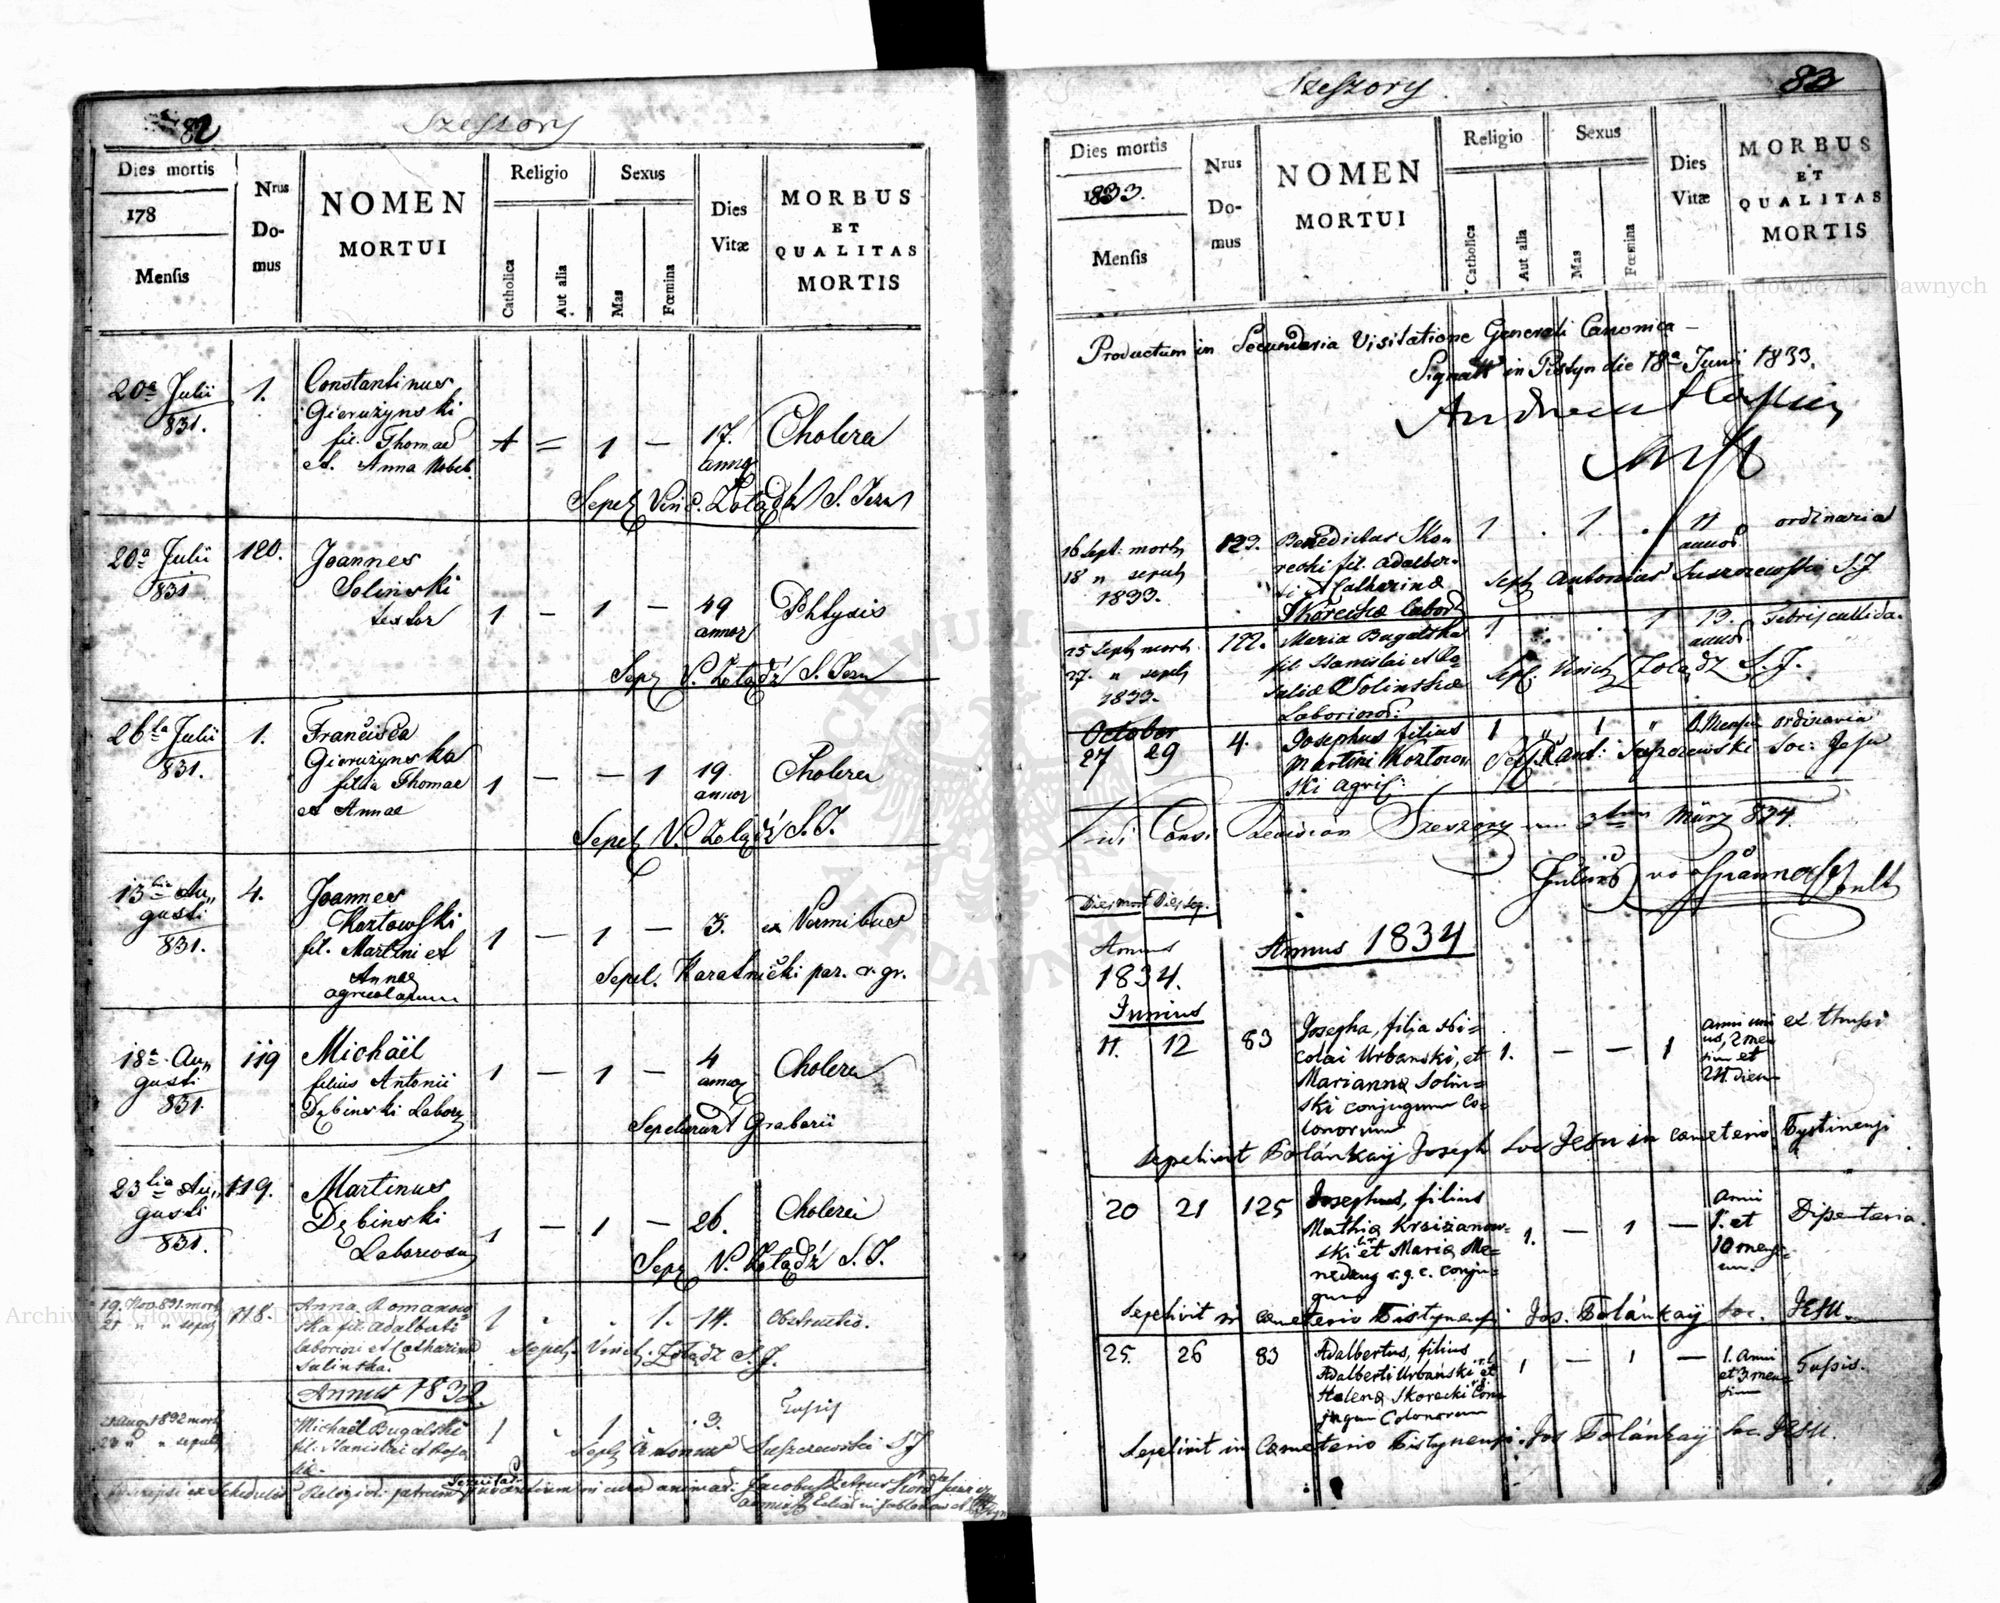 82
Szeszory
Dies mortis
178
Mensis
Nrus
Do-
mus
NOMEN
MORTUI
Religio
Catholica
Aut alia
Sexus
Mas
Fœmina
Dies
Vitæ
MORBUS
ET
QUALITAS
MORTIS
20a Julii
831.
1.
Constantinus
Gierużynski
fil. Thomae
et. Anna
1
17.
annor
Cholera
Sepel. Vinc. Żołądź S. Jesu
20a Julii
831
120.
Joannes
Solinski
textor
1 – 1 –
49
annor
Phtysis
Sepel. V. Żołądź S. Jesu
26ta Julii
831.
1.
Francisca
Gierużynska
filia Thomae
et Annae
1 – – 1
19
annor
Cholera
Sepel. V. Żołądź S. J.
13tia Au,,
gusti
831.
4.
Joannes
Kozłowski
fil. Martini et
Annae
agricolarum
1 – 1 –
3.
ex Vermibus
Sepel. Karatnicki par. r. gr.
18a Au,,
gusti
831.
119
Michaël
filius Antonii
Dębinski Labor
1 – 1 –
4
annor
Cholera
Sepelierunt Grabarii
23tia Au,,
gusti
831.
119.
Martinus
Dębinski
Laboriosus
1 – 1 –
26.
Cholera
Sepel. V. Żołądź S. J.
19. Nov. 831. mort
21 " " sepul
118.
Anna Romanow
ska fil. Adalberti
laboriosi et Catharina
Salinska.
1 . . 1.
14.
Obstructio.
Sepel. Vinc. Żołądz S. J.
Annus 1832.
21 Aug. 1832 mort
23 " " sepul
Michaël Bugalski
fil. Stanislai et Rosa
liæ.
1
1
3.
Tussis
Sepel. Antonius Suszczewski S J
83
Szeszory
Dies mortis
1833.
Mensis
Nrus
Do-
mus
NOMEN
MORTUI
Religio
Catholica
Aut alia
Sexus
Mas
Fœmina
Dies
Vitæ
MORBUS
ET
QUALITAS
MORTIS
Productum in Secundaria Visitatione Generali Canonica –
Signatt in Pistyn die 18a Junii 1833.
16 Sept: mort,
18 " sepul,
1833.
123.
Benedictus Sko
recki fil. Adalber-
ti et Catharinæ
Skorecka labor
1 . 1 .
11
annor
ordinaria
Sepel Antonius Suszczewski S. J
25 Sept, mort.
27. " sepul,
1833.
122.
Maria Bugalska
fil. Stanislai et Ro-
saliæ Solinskæ
Laborios:
1 . . 1
19.
annor
Febris callida.
Sepel. Vinc. Żołądz S. J.
October
27 29
4.
Josephus filius
Martini Kozłow
ski agric:
1 " 1 "
Mensu
ordinaria
Sepel. Ant: Suszczewski Soc: Jesu
Szeszory
März 834.
Dies mort Dies Sep.
Annus
1834.
Annus 1834
Junius
11. 12
83
Josepha, filia Ni=
colai Urbanski, et
Marianna Solin=
ski conjugum Co=
lonorum
1. – – 1
anni uni
us, 2 men
sium et
24. dieum
ex. thussi
Sepelivit Polánkaÿ Joseph Soc Jesu in cœmeterio Pystinensi
20 21
125
Josephus, filius
Mathiæ Krziżanow-
ski et Mariæ Me=
r. g. c. conju=
gum
1. – 1 –
Anni
1. et
10 mens=
ium.
Disenteria.
Sepelivit in cœmeterio Pistynensi Jos. Polánkaÿ Soc. Jesu.
25. 26
83
Adalbertus, filius
Adalberti Urbański et
Helenæ Skorecki Con
jugum Colonorum
1 – 1 –
1. Anni
et 3 men
sium
Tussis.
Sepelivit in Cœmeterio Pistynensi. Jos Polánkaÿ Soc. Jesu.
Archiwum Główne Akt Dawnych
Archiwum Główne Akt Dawnych